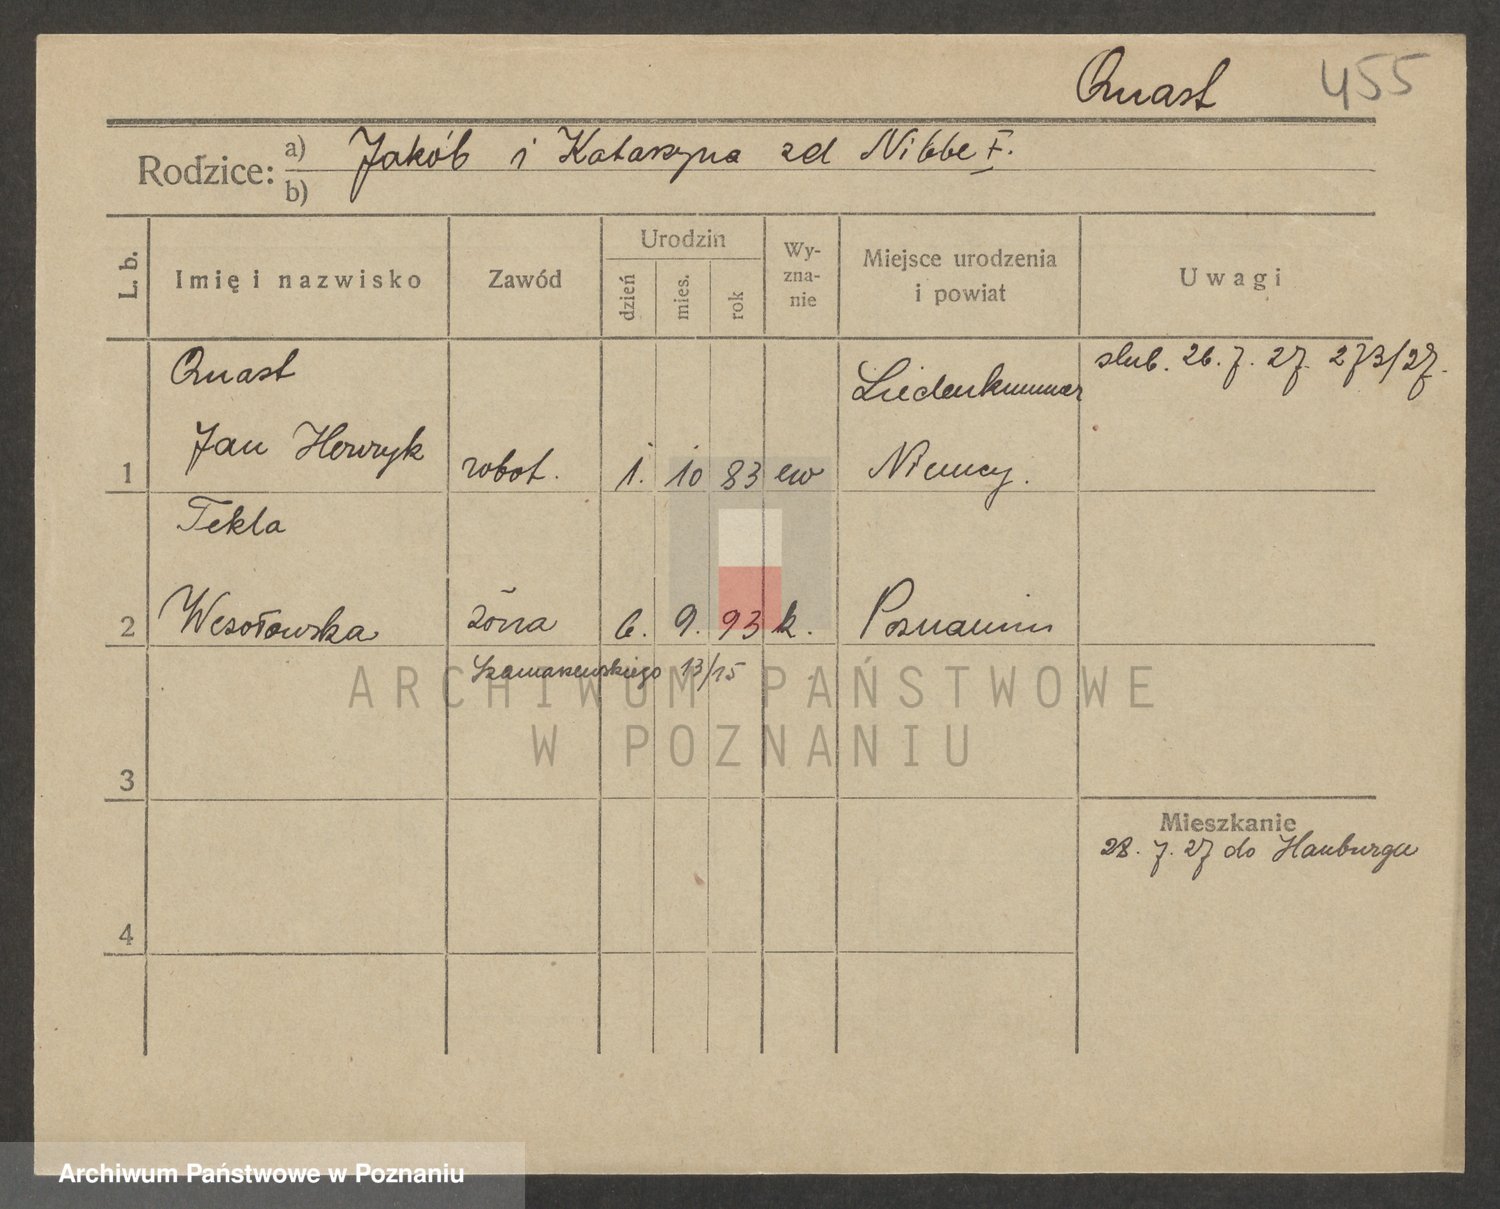 Quast 455
Rodzice: a) Jakób i Katarzyna zd Nibbe †.
b)
L. b. Imię i nazwisko Zawód Urodzin dzień mies. rok Wy-zna-nie Miejsce urodzenia i powiat Uwagi
Quast ślub. 26. 7. 27. 273/27.
1 Jan Henryk robot. 1. 10 83 ew Niemcy.
Tekla
2 Wesołowska żona 6. 9. 93 k. Poznaniu
Szamarzewskiego 13/15
3
Mieszkanie
28. 7. 27 do Hamburga
4
ARCHIWUM PAŃSTWOWE
W POZNANIU
Archiwum Państwowe w Poznaniu